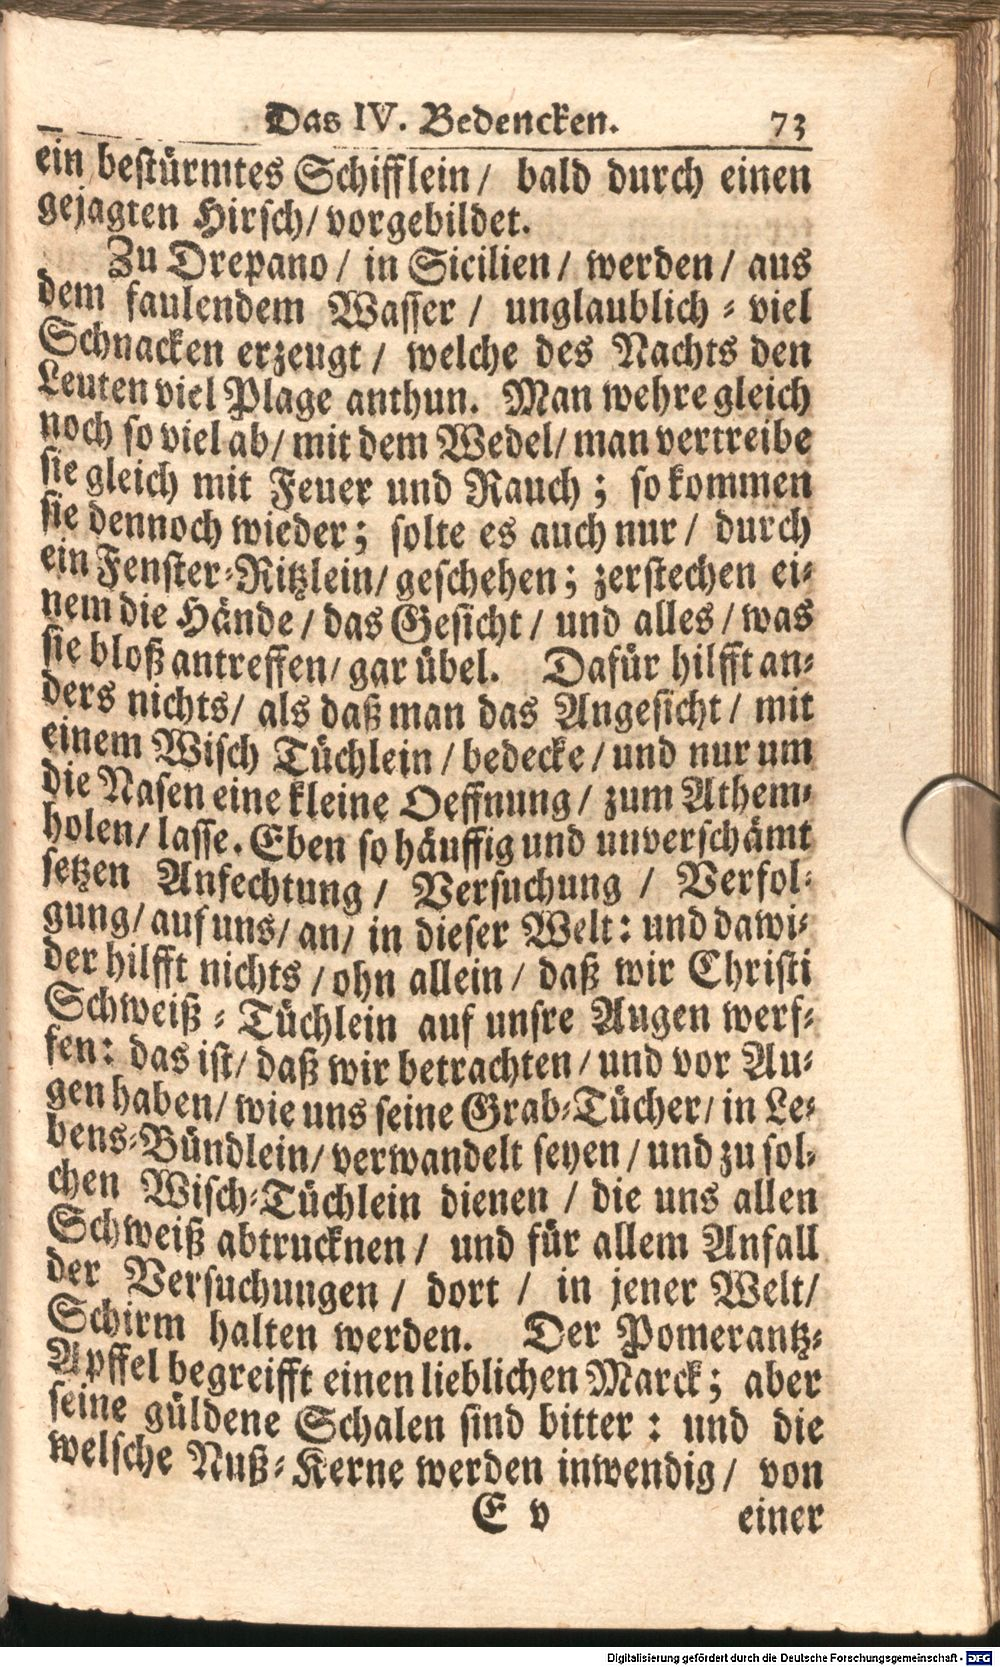 Das IV. Bedencken. 73
ein bestürmtes Schifflein / bald durch einen
gejagten Hirsch / vorgebildet.
Zu Drepano / in Sicilien / werden / aus
dem faulendem Wasser / unglaublich-viel
Schnacken erzeugt / welche des Nachts den
Leuten viel Plage anthun. Man wehre gleich
noch so viel ab / mit dem Wedel / man vertreibe
sie gleich mit Feuer und Rauch; so kommen
sie dennoch wieder; solte es auch nur / durch
ein Fenster-Ritzlein / geschehen; zerstechen ei-
nem die Hände / das Gesicht / und alles / was
sie bloß antreffen / gar übel. Dafür hilfft an-
ders nichts / als daß man das Angesicht / mit
einem Wisch Tüchlein / bedecke / und nur um
die Nasen eine kleine Oeffnung / zum Athem-
holen / lasse. Eben so häuffig und unverschämt
setzen Anfechtung / Versuchung / Verfol-
gung / auf uns / an / in dieser Welt: und dawi-
der hilfft nichts / ohn allein / daß wir Christi
Schweiß-Tüchlein auf unsre Augen werf-
fen: das ist / daß wir betrachten / und vor Au-
gen haben / wie uns seine Grab-Tücher / in Le-
bens-Bündlein / verwandelt seyen / und zu sol-
chen Wisch-Tüchlein dienen / die uns allen
Schweiß abtrucknen / und für allem Anfall
der Versuchungen / dort / in jener Welt /
Schirm halten werden. Der Pomerantz-
Apffel begreifft einen lieblichen Marck; aber
seine güldene Schalen sind bitter: und die
welsche Nuß-Kerne werden inwendig / von
E v einer
Digitalisierung gefördert durch die Deutsche Forschungsgemeinschaft - DFG